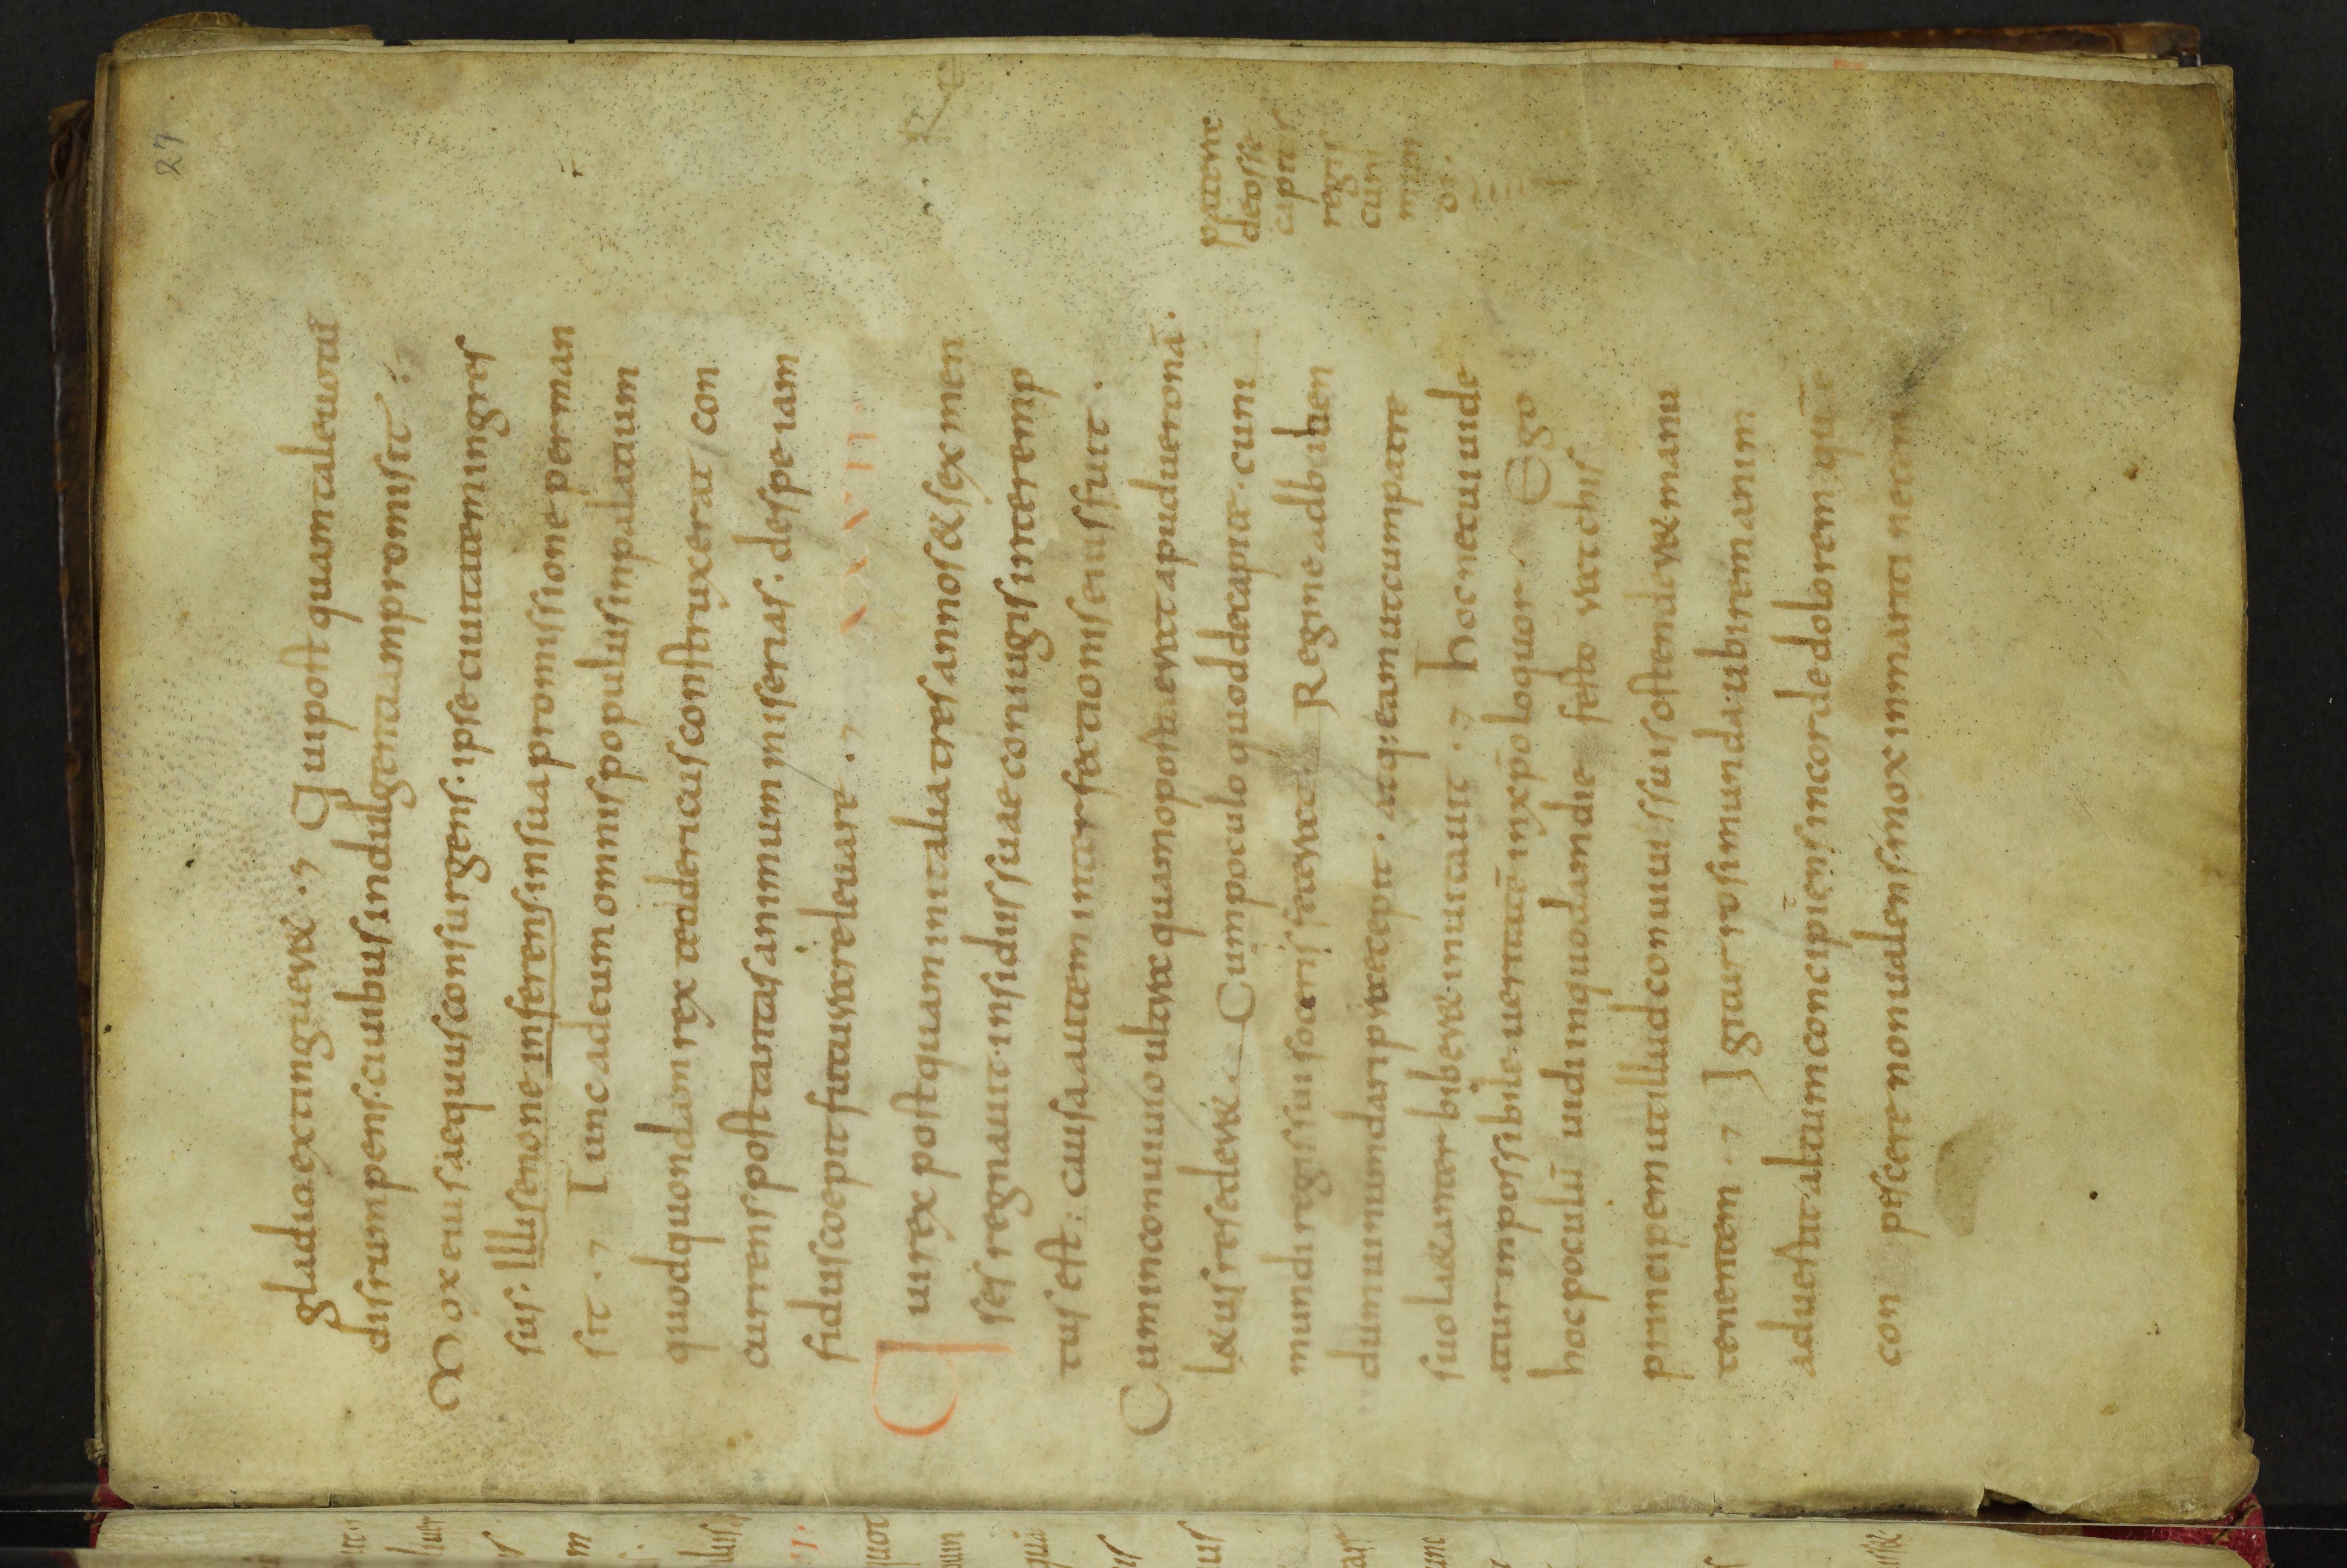 27
gladio extinguere. Qui post quam tale uotū
disrumpens. ciuibus indulgentiam promisit.
Mox eius aequus consurgens. ipse ciuitatem ingres
sus. Illusenone inferens. in sua promissione perman
sit. Tunc ad eum omnis populus in palatium
quod quondam rex teodericus construxerat con
currens post tantas animum miserias. de spe iam
fidus coepit futura releuare.
XXVII
Qui rex post quam in italia tres annos & sex men
ses regnauit. insidiis suae coniugis interemp
tus est: causa autem interfectionis eius fuit.
Cum in conuiuio ultra quam oportuerat apud ueronā.
laetus resederet. Cum poculo quod de capite. cuni
mundi regis sui soceris fecerat. Regine ad biben
dum uinum dari precepit. atq: eam ut cum patre
suo laetanter biberet inuitauit. hoc ne cui uide
atur inpossibile. ueritatē in xp̄o loquor. Ego
hoc poculū uidi in quodam die festo ratchis
principem ut illud conuiuis suis ostenderet manu
tenentem. Igitur rosimunda. ubi rem anim
aduertit altum concipiens in corde dolorem quē
con pescere non ualens. mox in mariti necem
patera
de osse
capitis
regis
cuni
mun
di.